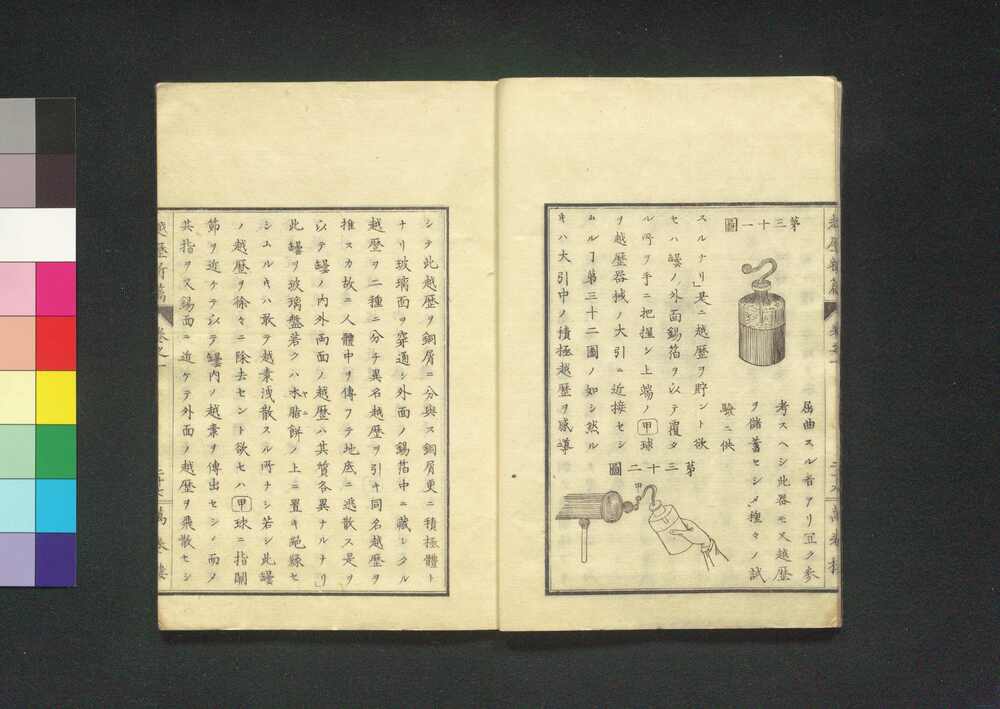 第三十一圖
屈曲スル者アリ宜ク參
考スヘシ此器モ又越歷
ヲ儲蓄セシメ種々ノ試
驗ニ供
スルナリ」是ニ越歷ヲ貯ント欲
セハ罎ノ外面錫箔ヲ以テ覆タ
ル所ヲ手ニ把握シ上端ノ甲球
ヲ越歷器械ノ大引ニ近接セシ
ムルヿ第三十二圖ノ如シ然ル
キハ大引中ノ積極越歷ヲ感導
第三十二圖
甲
シテ此越歷ヲ銅屑ニ分與ス銅屑更ニ積極體ト
ナリ玻璃面ヲ穿通シ外面ノ錫箔中ニ藏シタル
越歷ヲ二種ニ分チ異名越歷ヲ引キ同名越歷ヲ
推ス故ニ人體中ヲ傳フテ地底ニ逃散ス是ヲ
以テ罎ノ内外両面ノ越歷ハ其質各異ナルナリ」
此罎ヲ玻璃盤若クハ木脂餅ノ上ニ置キ絶緣セ
シムルキハ敢テ越素洩散スル所ナシ若シ此罎
ノ越歷ヲ徐々ニ除去セント欲セハ甲球ニ指關
節ヲ近ケテ以テ罎内ノ越素ヲ傳出セシメ而メ
其指ヲ又錫面ニ近ケテ外面ノ越歷ヲ飛散セシ